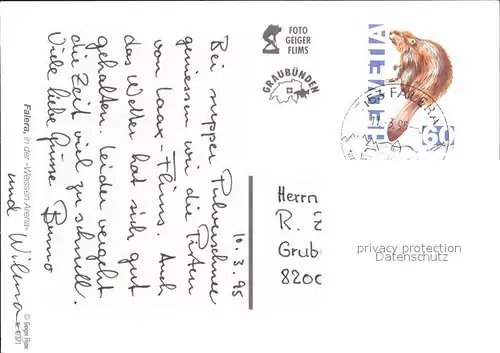 10.3.95
Bei supper Pulverschnee
geniessen wir die Pisten
von Laax-Flims. Auch
das Wetter hat sich gut
gehalten. Leider vergeht
die Zeit viel zu schnell.
Viele liebe Grüsse Benno
und Wilma
Falera, in der «Weissen Arena»
© Geiger Flims
FOTO
GEIGER
FLIMS
GRAUBÜNDEN
HELVETIA
60
FALERA
Herrn
R.
Grub
8200
privacy protection
Datenschutz